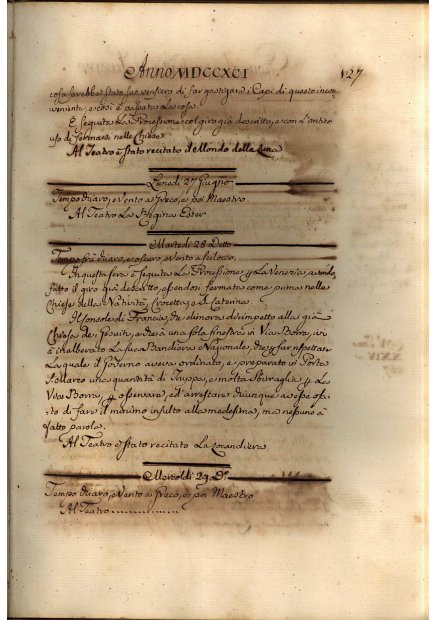 Anno MDCCXCI
127
cosa sarebbe stato suo pensiero di far gastigare i Capi di questo incon
veniente, e così è passata la cosa.
E' seguita la Processione col giro già descritto, e con l'antico
uso di fermarsi nelle Chiese
Al Teatro è stato recitato il Mondo della Luna
Lunedì 27 Giugno
Tempo chiaro, e Vento a Greco, e poi Maestro
Al Teatro La Regina Ester
Martedì 28 Detto
Tempo chiaro, e oscuro, e Vento a Scilocco
In questa sera è seguita La Processione La Venezia, avendo
fatto il giro già descritto, essendosi fermata come prima nelle
Chiese della Natività, Crocetta, e S. Caterina
Il Console di Francia, che dimora dirimpetto alla già
Chiesa de Gesuiti, e che à una sola finestra in Via Borra, in
à inalberato La sua Bandiera Nazionale, che far rispettare
La quale il Governo aveva ordinato, e preparato in Porta
una quantità di Truppa, e molta Sbirraglia La
Via Borra, osservare, ed arrestare chiunque avesse
to di fare il minimo insulto alla medesima, ma nessuno à
fatto parola.
Al Teatro è stato recitato La Locandiera
Mercoldì 29 D.o
Tempo chiaro, e Vento a Greco, e poi Maestro
Al Teatro..............